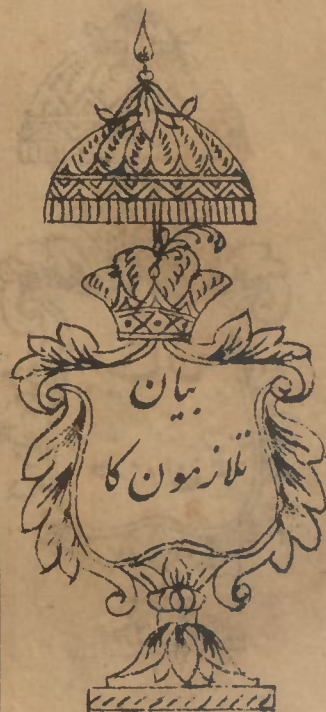 بیان
تلازمون کا